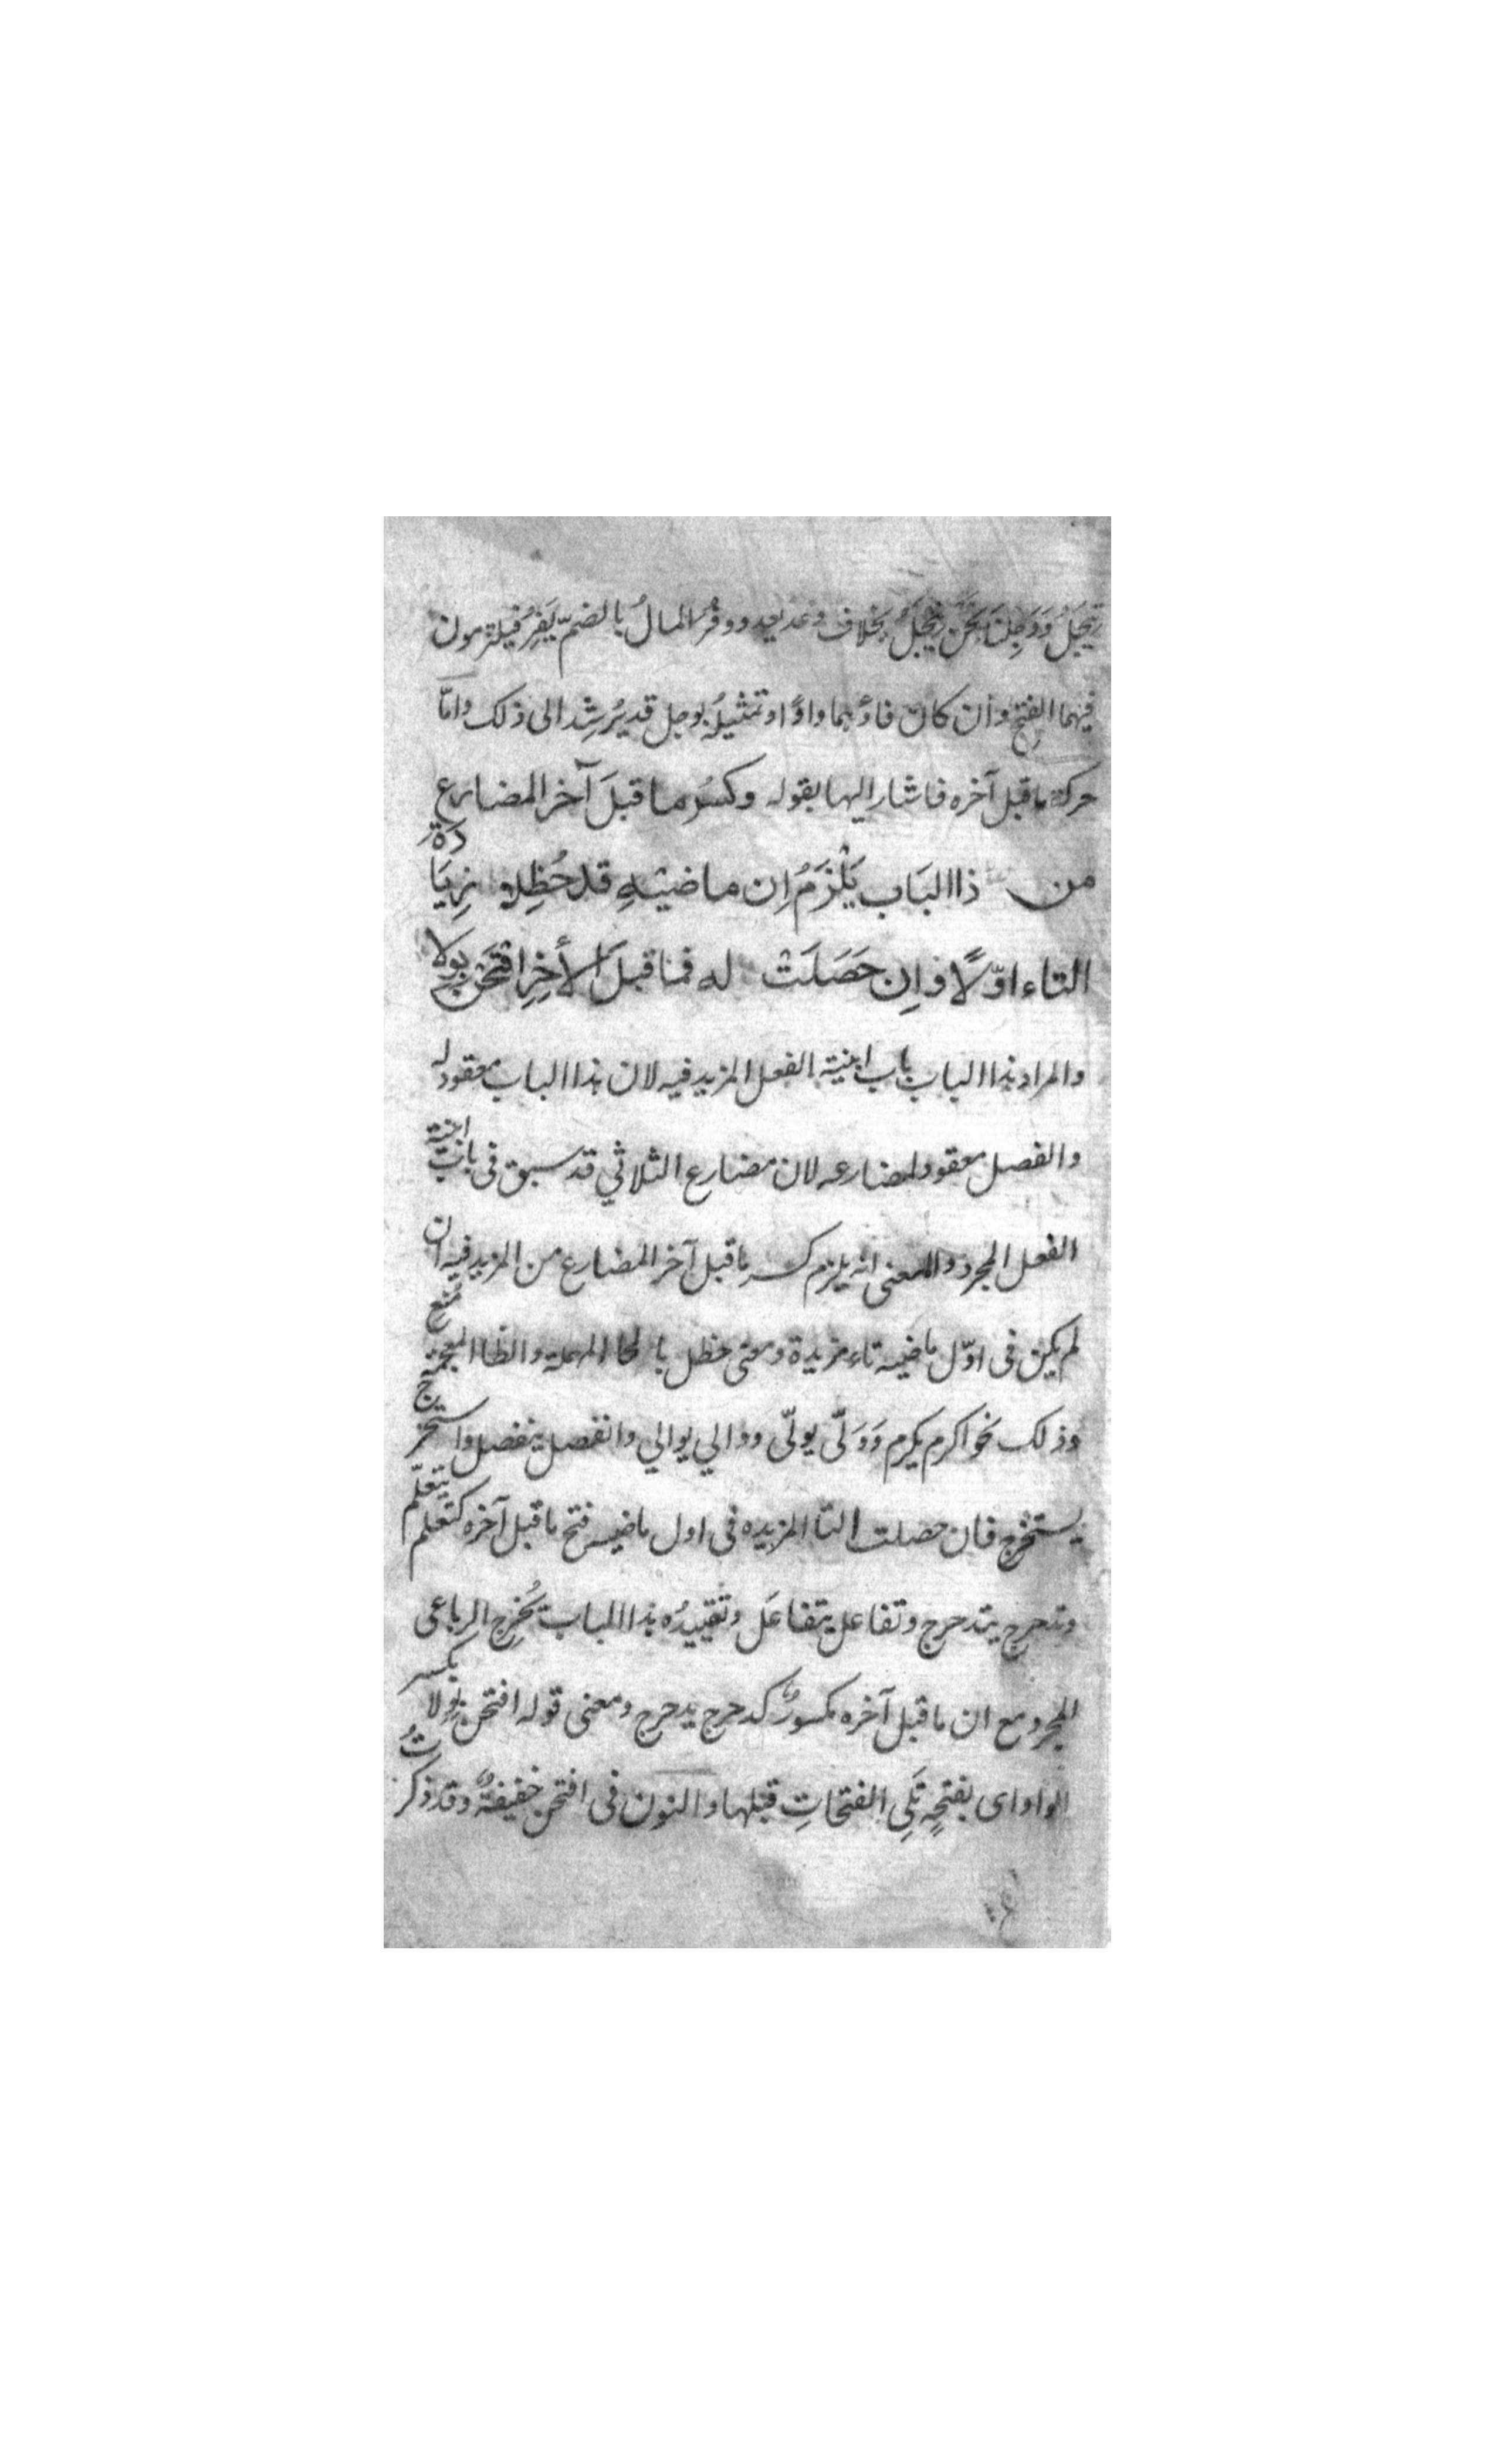 تِيجَلُ وَوَجِلنَا نَحْنُ نِيجَلُ بخلاف وعد يعد ووفُر المالُ بالضمّ يَفِرُ فيلتزمون
فيهما الفتح وان كان فاؤهما واوًا وتمثيلُه بوجل قد يُرشِد الى ذلك وامّا
حركة ما قبل آخره فاشار اليها بقوله وكسرُ ما قبلَ آخر المضارع
من ذا البَاب يَلْزَمُ اِن ماضيْهِ قد حُظِلا زِيَادَةُ
التاء اوّلًا وَاِن حَصَلَتْ له فما قبلَ الأخِرِ افتَحَنْ بِوِلا
والمراد بذا الباب باب ابنية الفعل المزيد فيه لان هذا الباب معقود له
والفصل معقود لمضارعه لان مضارع الثلاثي قد سبق فى باب ابنية
الفعل المجرد والمعنى انه يلزم كسر ما قبل آخر المضارع من المزيد فيه ان
لم يكن فى اوّل ماضيه تاء مزيدة ومعنى حظل بالحا المهملة والظا المعجمة مُنع
وذلك نحو اكرم يكرم وَوَلّى يولّى ووالي يوالي وانفصل ينفصل واستخرج
يستخرج فان حصلت التا المزيده فى اول ماضيه فتح ما قبل آخره كتعلم يتعلّم
وتدحرج يتدحرج وتفاعل يتفاعَل وتقييدُه بذا الباب يُخرِج الرباعى
المجرد مع ان ما قبل آخره مكسورٌ كدحرج يدحرج ومعنى قوله افتحن بِوِلا بكسر
الواو اى بفتحةٍ تَلِي الفتحاتِ قبلها والنون فى افتحن خفيفةٌ وقد ذكرتُ